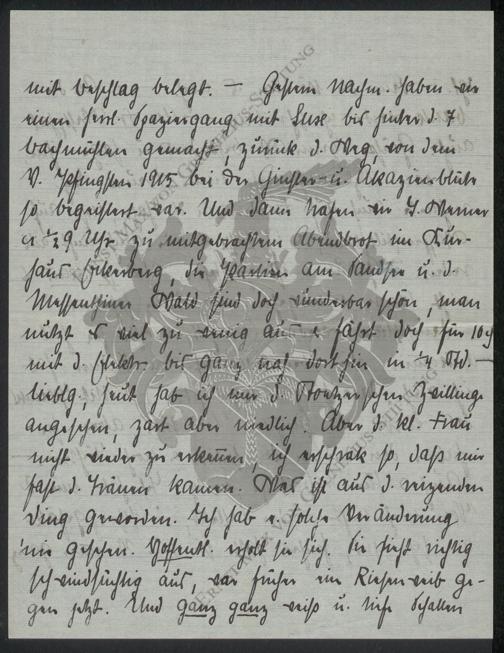 mit Beschlag belegt. — Gestern Nachm. haben wir
einen herrl. Spaziergang mit Luse bis hinter d. 7
Bachmühlen gemacht, zurück d. Weg, von dem
V. Pfingsten 1915 bei der Ginster- u. Akazienblüte
so begeistert war. Und dann trafen wir Werner
½9 Uhr zu mitgebrachtem Abendbrot im Kur-
haus Eckerberg, die Partien am Sandsee u. d.
Messenthiner Wald sind doch wunderbar schön, man
nützt es viel zu wenig aus u. fährt doch für 10 ₰
mit d. Elektr. bis ganz nah dorthin in ¼ Std. —
Lieblg., heut hab ich mir d. Zwillinge
angesehen, zart aber niedlich. Aber d. kl. Frau
nicht wieder zu erkennen, ich erschrak so, daß mir
fast d. Tränen kamen. Was ist aus d. reizenden
Ding geworden. Ich hab e. solche Veränderung
nie gesehen. Hoffentl. erholt sie sich. Sie sieht richtig
schwindsüchtig aus, war früher ein Riesenweib ge-
gen jetzt. Und ganz ganz weiß u. tiefe Schatten
ERNST-MAX-VON-GRUNELIUS-STIFTUNG